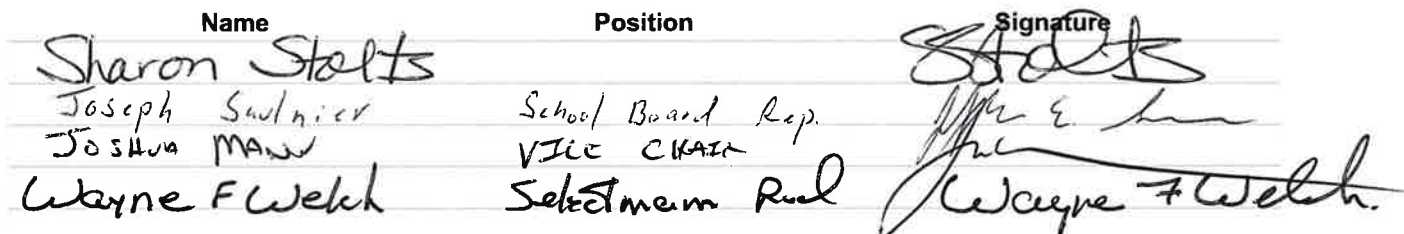 Name Position Signature
Sharon Stolts SStolts
Joseph Saulnier School Board Rep.
JOSHUA MANN VICE CHAIR
Wayne F Welch Selectmam Wayne F Welch.